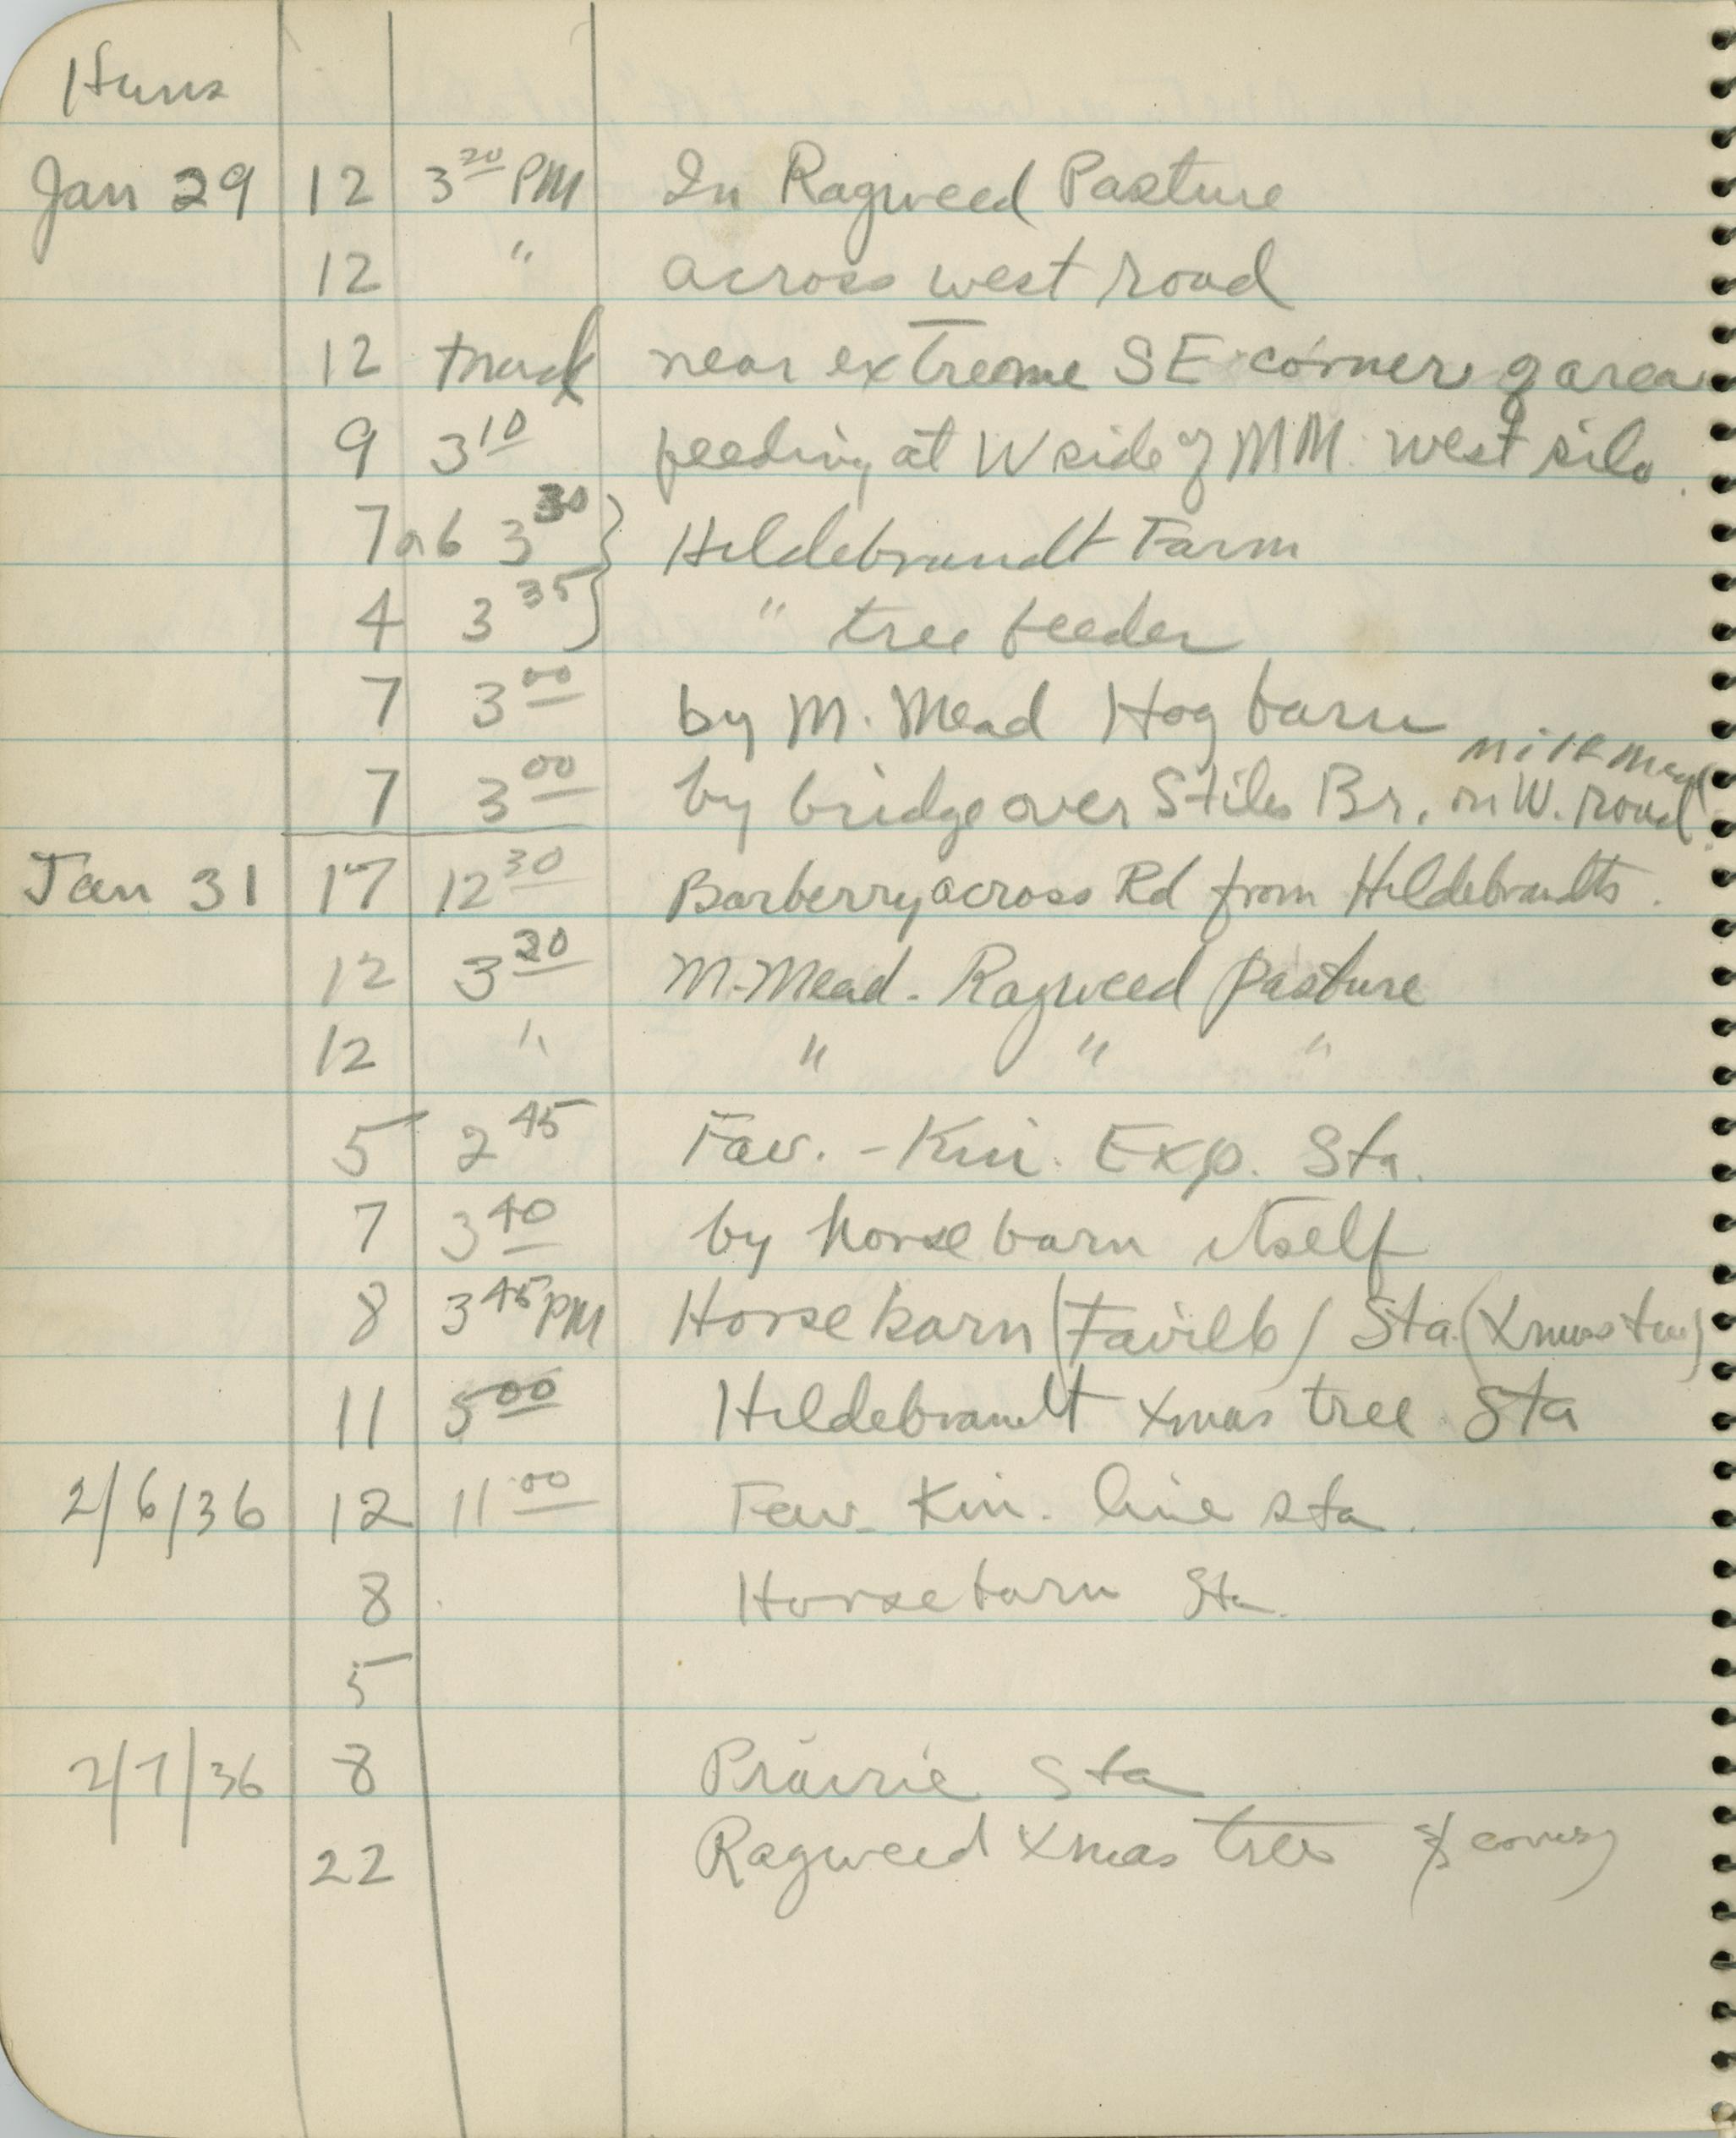 Huns
Jan 29 12 3 20 PM In Ragweed Pasture
12 " across west road
12 track near extreme SE corner of area
9 3 10 feeding at W side of MM. west silo.
7 or 6 3 30 } Hildebrandt Farm
4 3 35 } " tree feeder
7 3 00 by M. Mead Hog barn
7 3 00 by bridge over Stiles Br. on W. road
Jan 31 17 12 30 Barberry across Rd from Hildebrandts.
12 3 20 M-Mead - Ragweed pasture
12 " " " "
5 2 45 Fav. - Kin. Exp. Sta.
7 3 40 by horse barn itself
8 3 45 PM Horse barn (Favilb) Sta. (Xmas tree)
11 5 00 Hildebrandt Xmas tree Sta
2/6/36 12 11 00 Fav. Kin. line sta.
8 Horse barn Sta.
5
2/7/36 8 Prairie Sta
22 Ragweed Xmas trees